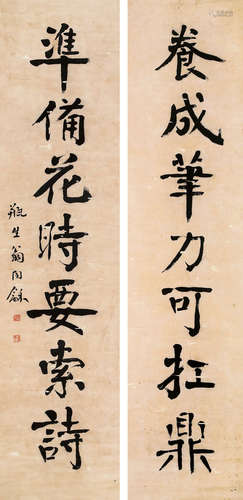 養成筆力可扛鼎
準備花時要索詩
瓶生翁同龢